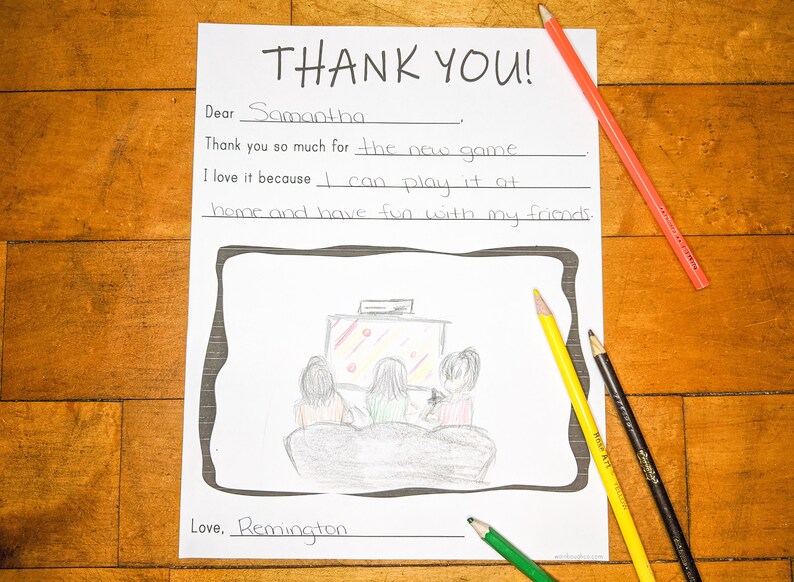 THANK YOU!
Dear Samantha,
Thank you so much for the new game.
I love it because I can play it at
home and have fun with my friends.
Love, Remington
Rose Art YELLOW